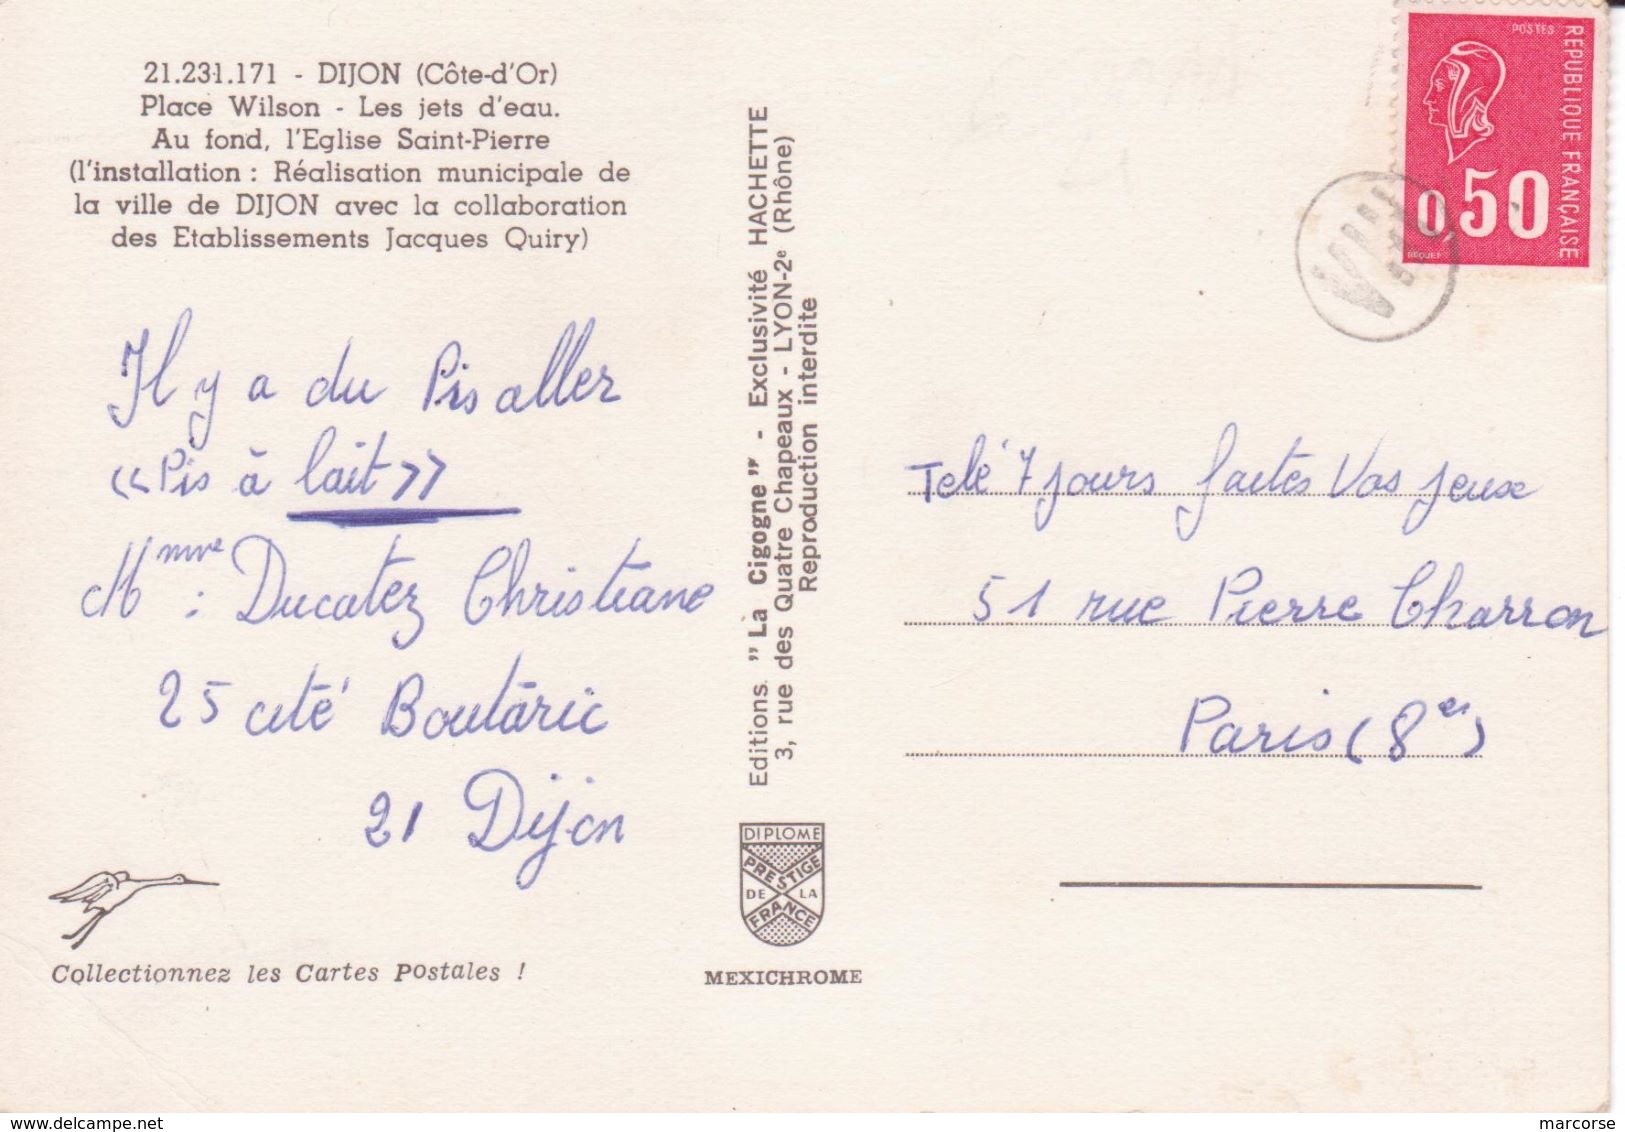 21.231.171 - DIJON (Côte-d'Or)
Place Wilson - Les jets d'eau.
Au fond, l'Eglise Saint-Pierre
(l'installation : Réalisation municipale de
la ville de DIJON avec la collaboration
des Etablissements Jacques Quiry)
Il y a du Pis aller
«Pis à lait»
Mme : Ducatez Christiane
25 cité Boutaric
21 Dijon
Collectionnez les Cartes Postales !
Editions "La Cigogne" - Exclusivité HACHETTE
3, rue des Quatre Chapeaux - LYON-2e (Rhône)
Reproduction interdite
DIPLOME
PRESTIGE
DE LA
FRANCE
MEXICHROME
POSTES
REPUBLIQUE FRANÇAISE
0,50
BEQUET
Telé 7 jours faites Vos jeux
51 rue Pierre Charron
Paris (8es)
delcampe.net
marcorse